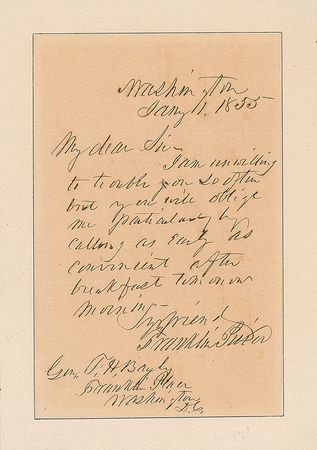 Washington
Jany 11, 1855
My dear Sir—
I am unwilling
to trouble you so often
but you will oblige
me particularly by
calling as early as
convenient after
breakfast tomorrow
morning—
Yr friend
Franklin Pierce
Gen. T. H. Bayly
Franklin Place
Washington
D.C.